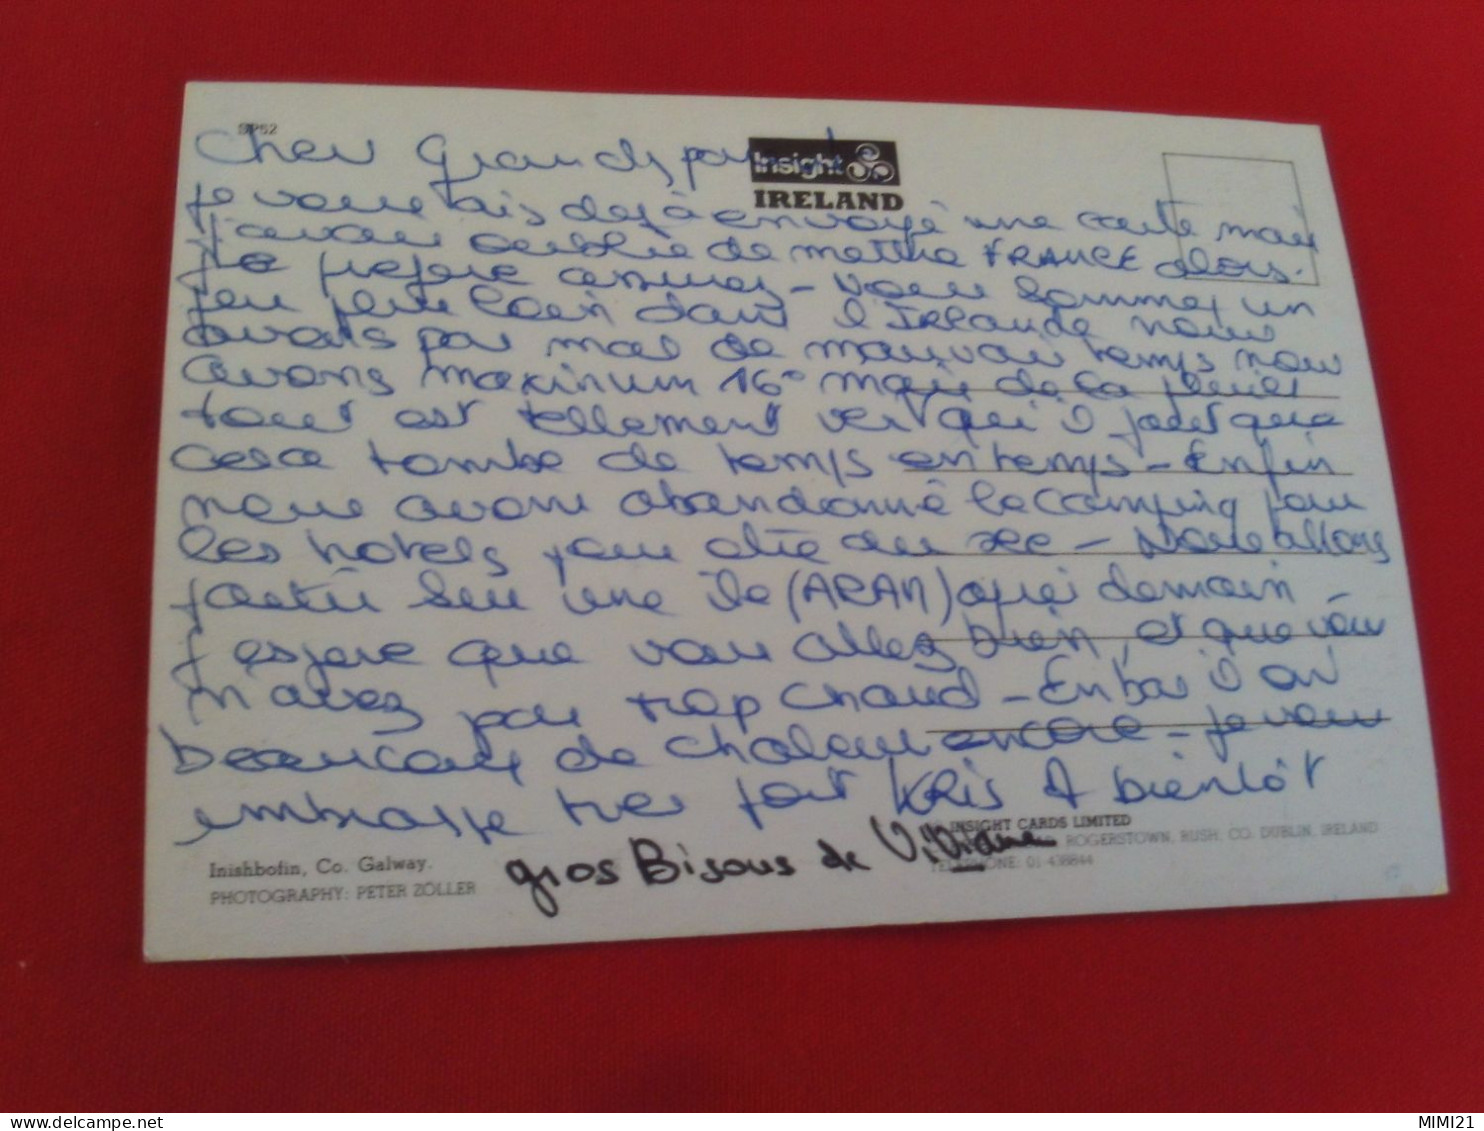 SP52
Insight
IRELAND
Cher Grands par
Je vous ais dejà envoyé une carte mais
J'avais oublié de mettre FRANCE alors.
Je prefere assurer - nous sommes un
peu plus loin dans l'IRLande nous
avons pas mal de mauvais temps nous
avons maximum 16° mais de la pluie
tout est tellement vert qui il faut que
cela tombe de temps en temps - Enfin
nous avons abandonné le camping pour
les hotels pour être au sec - Nous allons
partir sur une île (ARAN) après demain -
J'espere que vous allez bien, et que vous
n'avez pas trop chaud - En bas il on
beaucoup de chaleur encore - je vous
embrasse tres fort KRIS A bientôt
gros Bisous de Viviane
Inishbofin, Co. Galway.
PHOTOGRAPHY: PETER ZÖLLER
INSIGHT CARDS LIMITED
ROGERSTOWN, RUSH, CO. DUBLIN, IRELAND
TELEPHONE: 01-438844
MIMI21